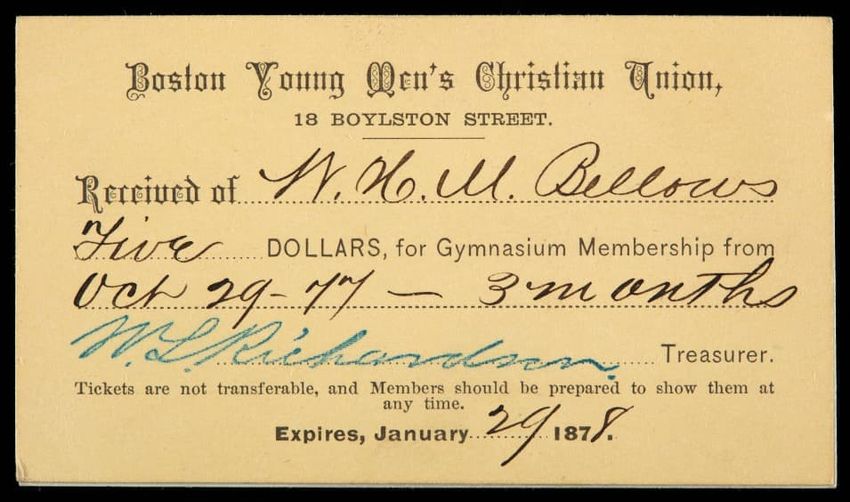 Boston Young Men's Christian Union,
18 BOYLSTON STREET.
Received of W. H. M. Bellows
Five DOLLARS, for Gymnasium Membership from
Oct 29-77 — 3 months
W. L. Richardson. Treasurer.
Tickets are not transferable, and Members should be prepared to show them at
any time.
Expires, January 29 1878.